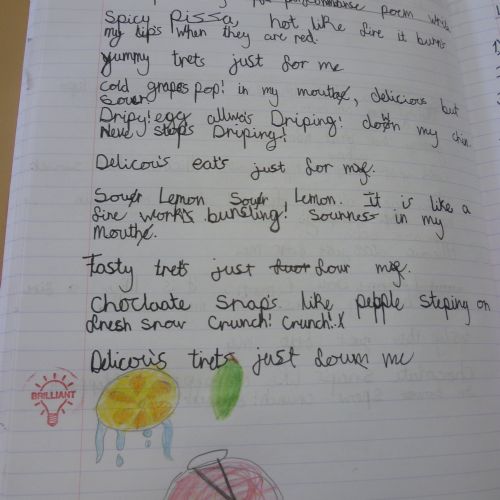 poem while
Spicy pissa, hot like fire it burns
my lip's when they are red.
yummy trets just for me
cold grapes pop! in my mouth, delicious but
sower
Dripy! egg allwais Driping! down my chin.
Never stops Driping!
Delicous eats just for me.
Sour Lemon Sour Lemon. It is like a
fire works bursting! Sourness in my
mouth.
Tasty trets just four me.
Choclaate snaps like pepple steping on
fresh snow Crunch! Crunch!
Delicous trets just four me
BRILLIANT